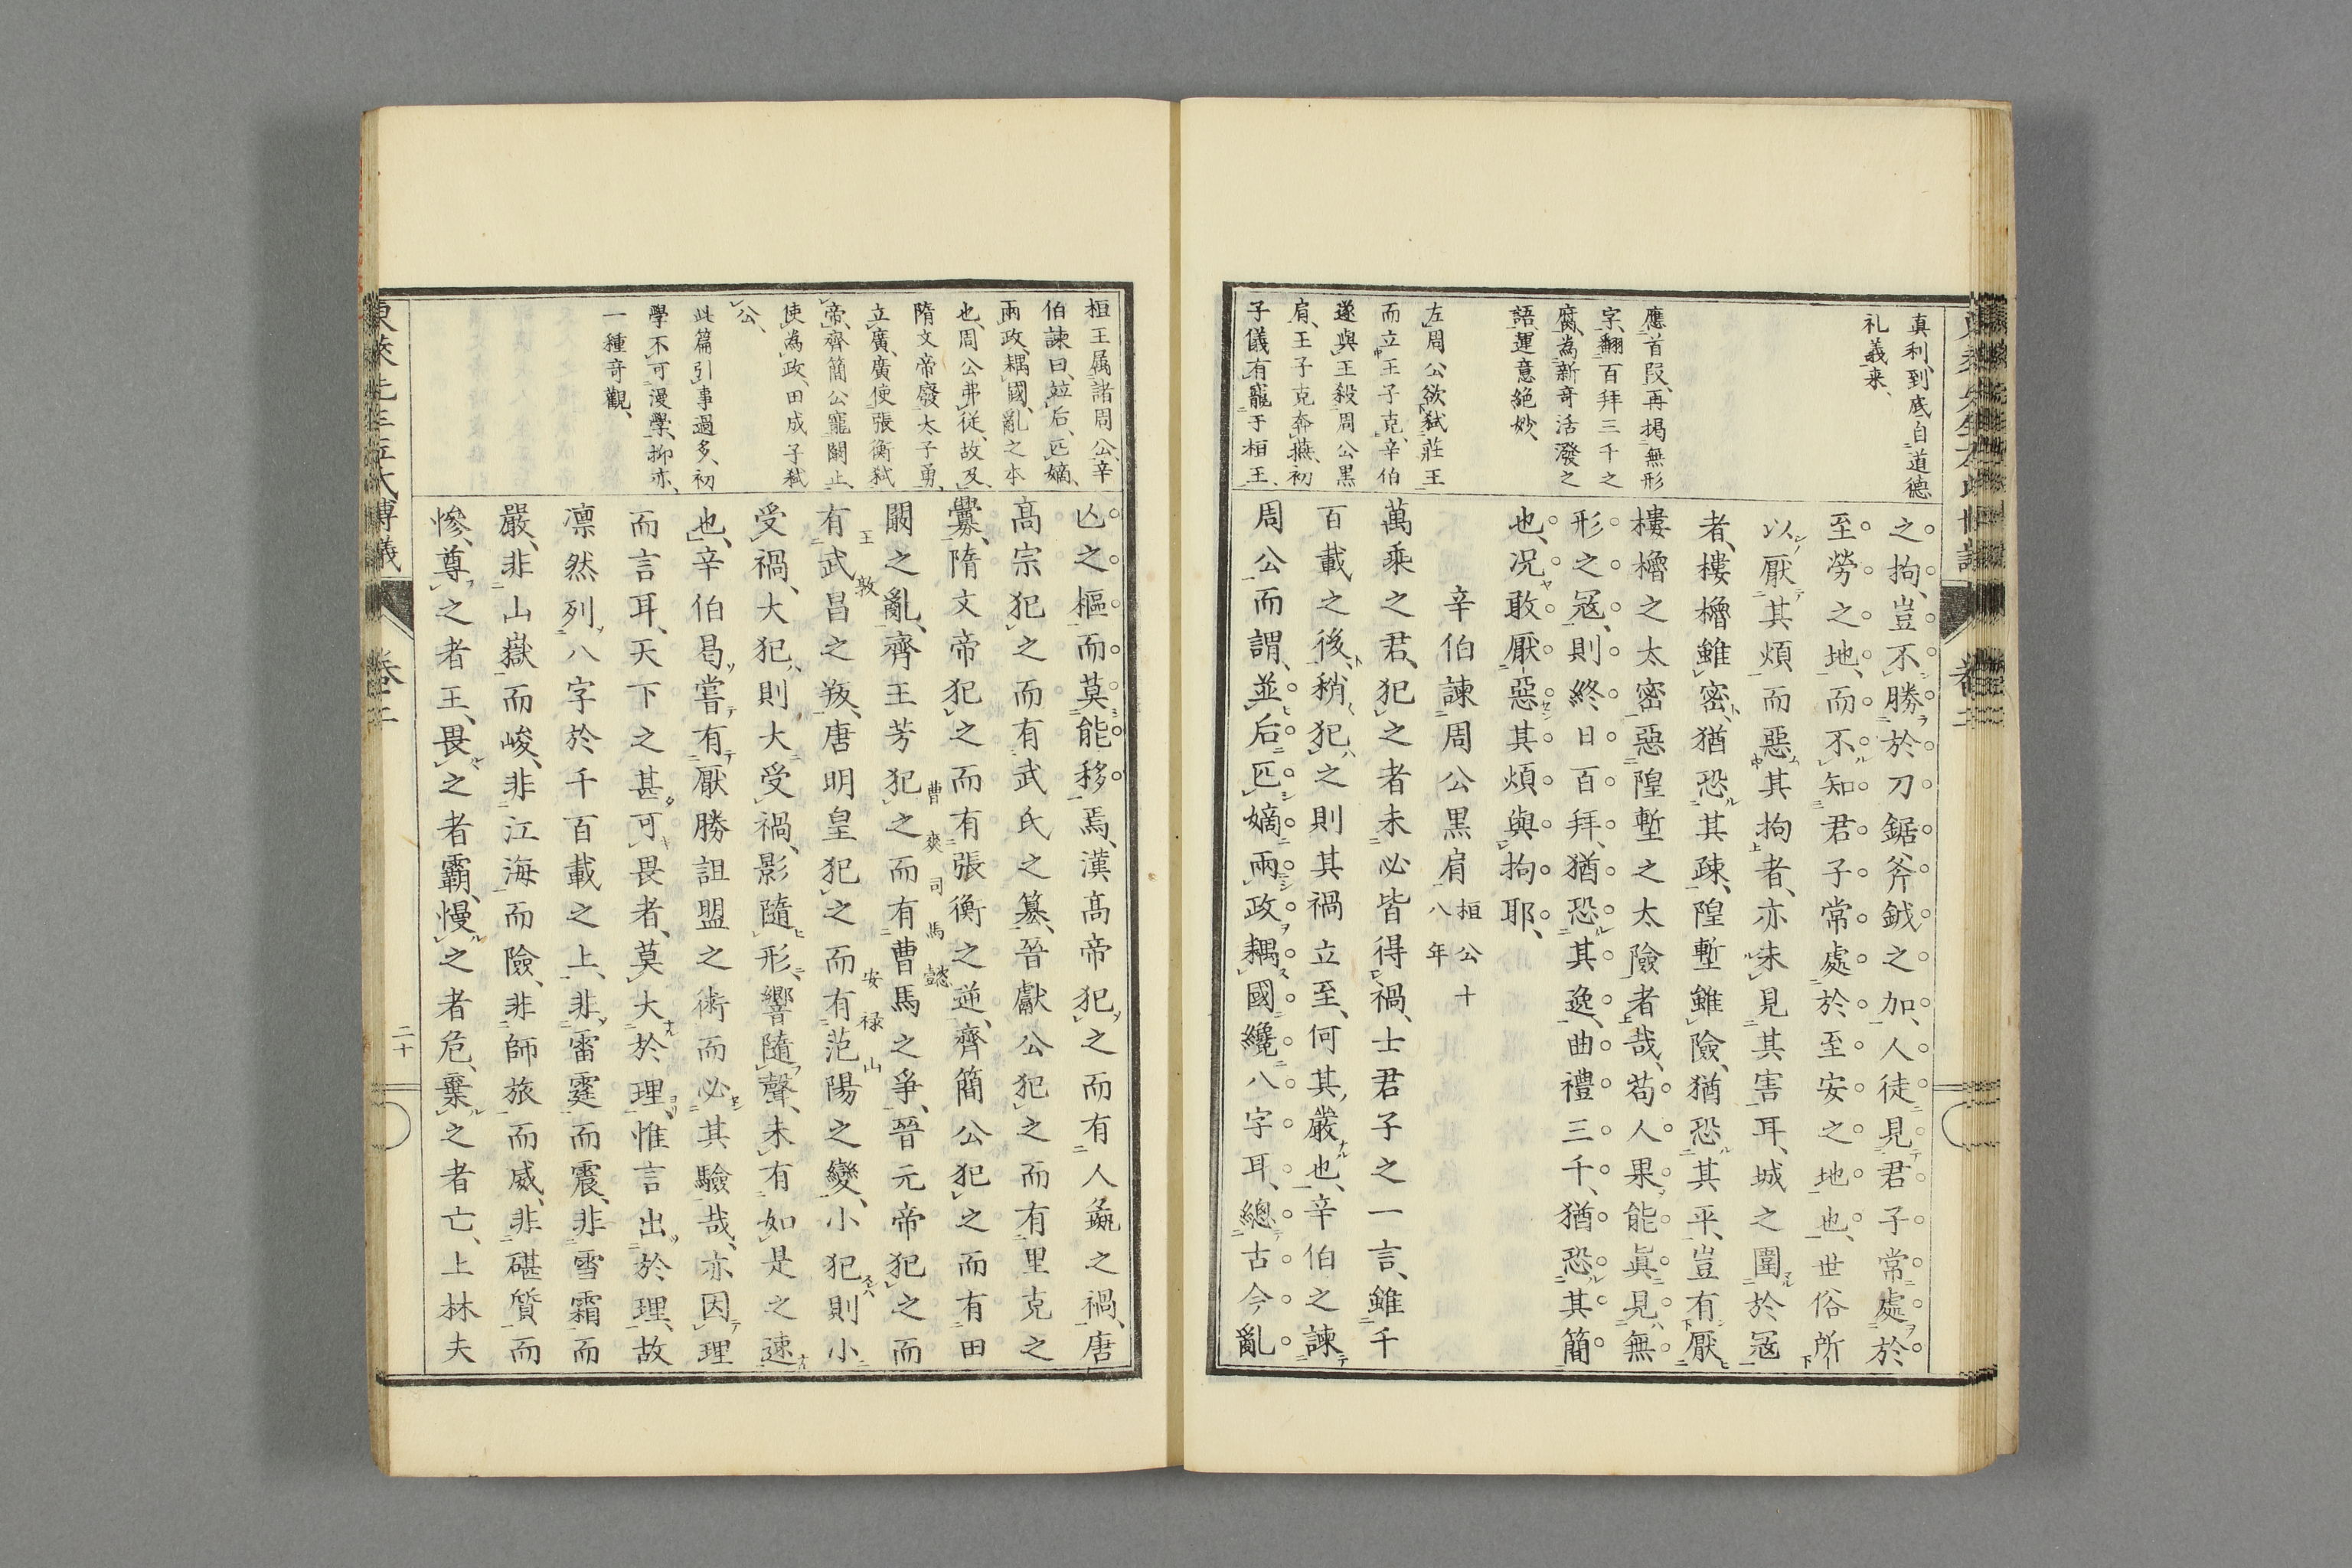 真利、到底自道德
礼義来、
應首段、再掲無形
字、翻百拜三千之
腐、為新奇活潑之
語、運意絶妙、
左、周公欲弑莊王
而立王子克、辛伯
遂與王殺周公黒
肩、王子克奔燕、初
子儀有寵于桓王、
之拘、豈不勝於刀鋸斧鉞之加、人徒見君子常處於
至勞之地、而不知君子常處於至安之地也、世俗所
以厭其煩而惡其拘者、亦未見其害耳、城之圍於冦
者、樓櫓雖密、猶恐其疎、隍塹雖險、猶恐其平、豈有厭
樓櫓之太密惡隍塹之太險者哉、苟人果能眞見無
形之冦、則終日百拜、猶恐其逸、曲禮三千、猶恐其簡
也、况敢厭惡其煩與拘耶、
辛伯諫周公黒肩 桓公十八年
萬乘之君、犯之者未必皆得禍、士君子之一言、雖千
百載之後、稍犯之則其禍立至、何其嚴也、辛伯之諫
周公而謂、並后匹嫡、兩政耦國、纔八字耳、總古今亂
卷二
桓王属諸周公、辛
伯諫曰、竝后、匹嫡、
兩政、耦國、亂之本
也、周公弗従、故及、
隋文帝廢太子勇、
立廣、廣使張衡弑
帝、齊簡公寵闞止、
使為政、田成子弑
公、
此篇引事過多、初
學不可漫學、抑亦、
一種奇觀、
亾之樞而莫能移焉、漢髙帝犯之而有人彘之禍、唐
髙宗犯之而有武氏之簒、晉獻公犯之而有里克之
釁、隋文帝犯之而有張衡之逆、齊簡公犯之而有田
闞之亂、齊王芳犯之而有曹馬之爭、晉元帝犯之而
曹爽司馬懿
有武昌之叛、唐明皇犯之而有范陽之變、小犯則小
王敦安禄山
受禍、大犯則大受禍、影隨形、響隨聲、未有如是之速
也、辛伯曷嘗有厭勝詛盟之術而必其驗哉、亦因理
而言耳、天下之甚可畏者、莫大於理、惟言出於理、故
凛然列八字於千百載之上、非雷霆而震、非雪霜而
嚴、非山嶽而峻、非江海而險、非師旅而威、非碪質而
慘、尊之者王、畏之者霸、慢之者危、棄之者亡、上林夫
東萊先生左氏博議
卷二
二十